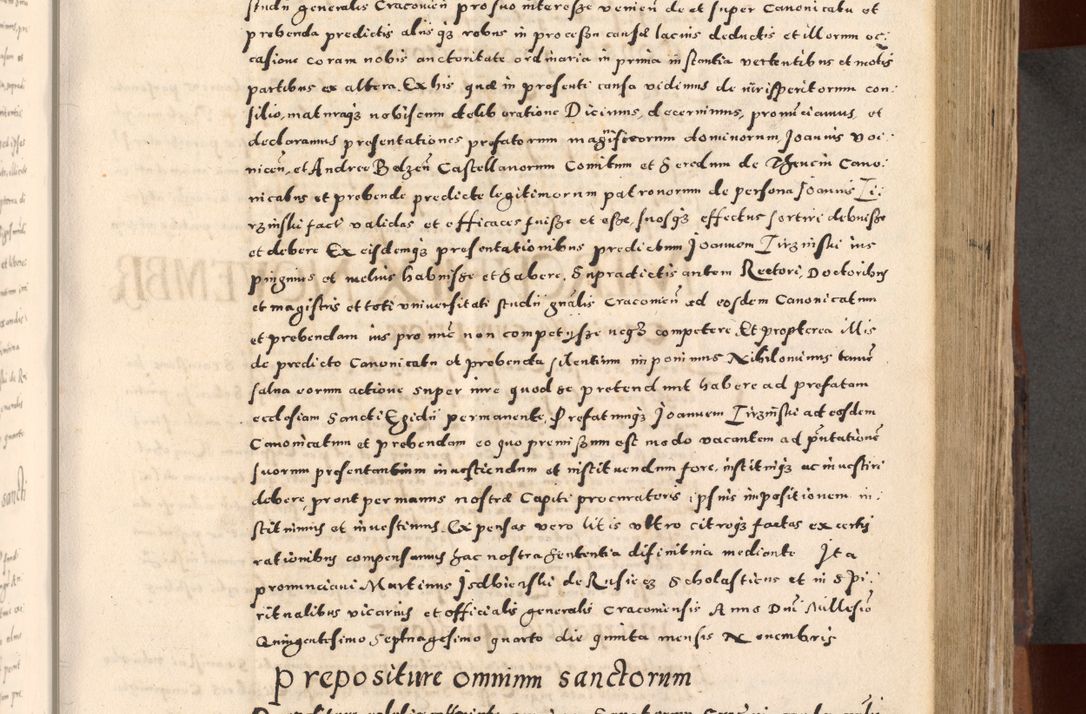 studii generalis Cracovien pro suo interesse venien de et super Canonicatu et
prebenda predictis aliisq3 rebus in processu causæ lacius deductis et illorum oc:
casione coram nobis auctoritate ordinaria in prima instantia vertentibus et motis
partibus ex altera. Ex his quæ in presenti causa vidimus de iurisperitorum con:
silio, maturaq3 nobiscum deliberatione Dicimus, decernimus, pronunciamus et
declaramus presentationes prefatorum magnificorum dominorum, Joannis voi:
nicen, et Andreæ Belzen Castellanorum Comitum et Heredum de Thencin Cano:
nicatus et prebende predicte legitimorum patronorum de persona Joannis Ti:
rzinski fact validas et efficaces fuisse et esse, suosq3 effectus sortiri debuisse
et debere Ex eisdemq3 presentationibus predictum Joannem Tirzinski ius
pinguius et melius habuisse et habere, Supradictis autem Rectori, Doctoribus
et magistris et toti universitati studii gnalis Cracovien ad eosdem Canonicatum
et prebendam ius pro nunc non competysse neq3 competere, Et propterea illis
de predicto Canonicatu et prebenda silentium imponimus Nihilominus tamen
salva eorum actione super iure quod se pretendunt habere ad prefatam
ecclesiam Sancti Egidii permanente, Prefatumq3 Joannem Tirzinski ad eosdem
Canonicatum et prebendam eo quo premissum est modo vacantem ad pntatione
suorum presentantium investiendum et instituendum fore, instituiq3 ac investiri
debere, prout per manus nostræ Capiti procuratoris ipsius impositionem in:
stituimus et investimus, Expensas vero litis ultro citroq3 factas ex certis
rationibus compensamus hac nostra Sententia difinitiva mediante Ita
pronunciavi Martinus Isdbienski de Rusiecz Scholasticus et in Spi:
ritualibus vicarius et officialis generalis Cracoviensis Anno Dni Millesio
Quingentesimo Septuagesimo quarto die quinta mensis Novembris
Prepositure omnium sanctorum